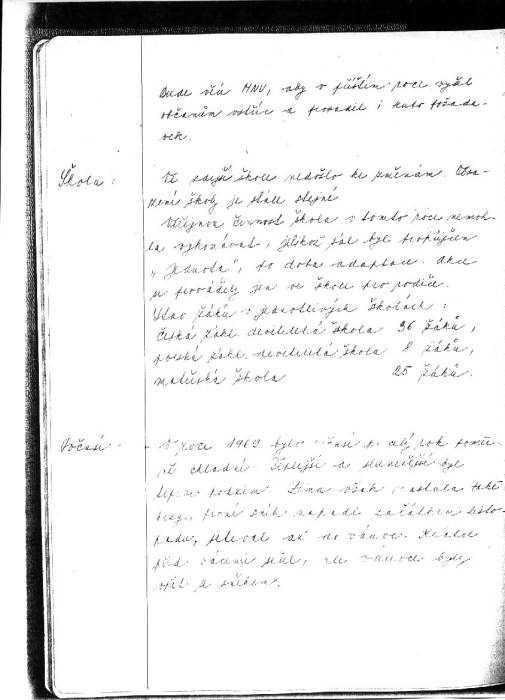 bude věcí MNV, aby v příštím roce vyšel
občanům vstříc a prosadil i tuto požada-
vek.
Škola:
Ve zdejší škole nedošlo ke změnám. Obsa-
zení školy je stále stejné
Veřejnou činnost škola v tomto roce nemoh-
la vykonávat, jelikož sál byl propůjčen
"Jednota", po dobu adaptace. Akce
se prováděly jen ve škole pro rodiče.
Stav žáků v jednotlivých školách:
česká zákl. devítiletá škola 36 žáků,
polská zákl. devítiletá škola 8 žáků,
mateřská škola 25 žáků.
Počasí:
V roce 1969 bylo počasí po celý rok poměr-
ně chladné. Teplejší a slunečnější byl
teprve podzim. Zima však nastala také
brzy, první sníh napadl začátkem listo-
padu, setrval až do vánoc. Krátce
před vánoci sešel, ale vánoce byly
opět se sněhem.